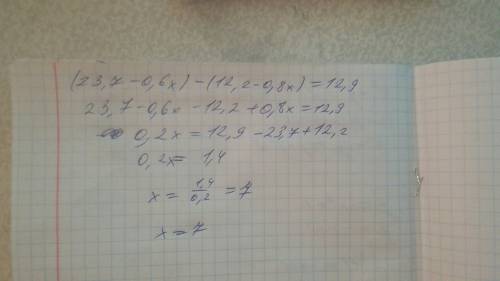 (23,7-0,6x)-(12,2-0,8x)=12,9
23,7-0,6x-12,2+0,8x=12,9
0,2x=12,9-23,7+12,2
0,2x=1,4
x=1,4/0,2=7
x=7